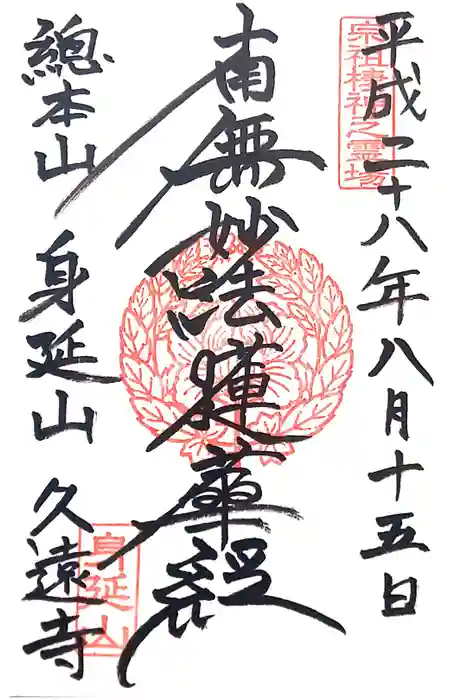 平成二十八年八月十五日
宗祖棲神之霊場
南無妙法蓮華経
總本山 身延山 久遠寺
身延山